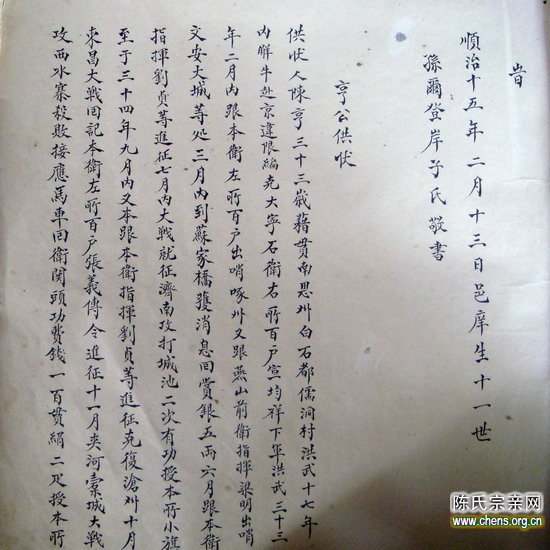 旹
順治十五年二月十三日邑庠生十一世
孫爾登岸子氏敬書
亨公供狀
供狀人陳亨三十三歲藉貫南恩州白石都儒洞村洪武十七年
内觧牛赴京違限編充大寧右衛右所百戶宣均祥下軍洪武三十三
年二月內跟本衛左所百戶出哨啄州又跟燕山前衛指揮梁明出哨
文安大城等処三月內到蘇家橋獲消息回賞銀五両六月跟本衛
指揮劉貞等進征七月內大戰就征濟南攻打城池二次有功授本所小旗
至于三十四年九月內又本跟本衛指揮劉貞等進征克復滄州十月
東昌大戰回記本衛左所百戶張義傳令進征十一月夾河藁城大戰
攻西水寨殺敗接應馬車回衛関頭功費錢一百貫絹二疋授本所
陈氏宗亲网
www.chens.org.cn